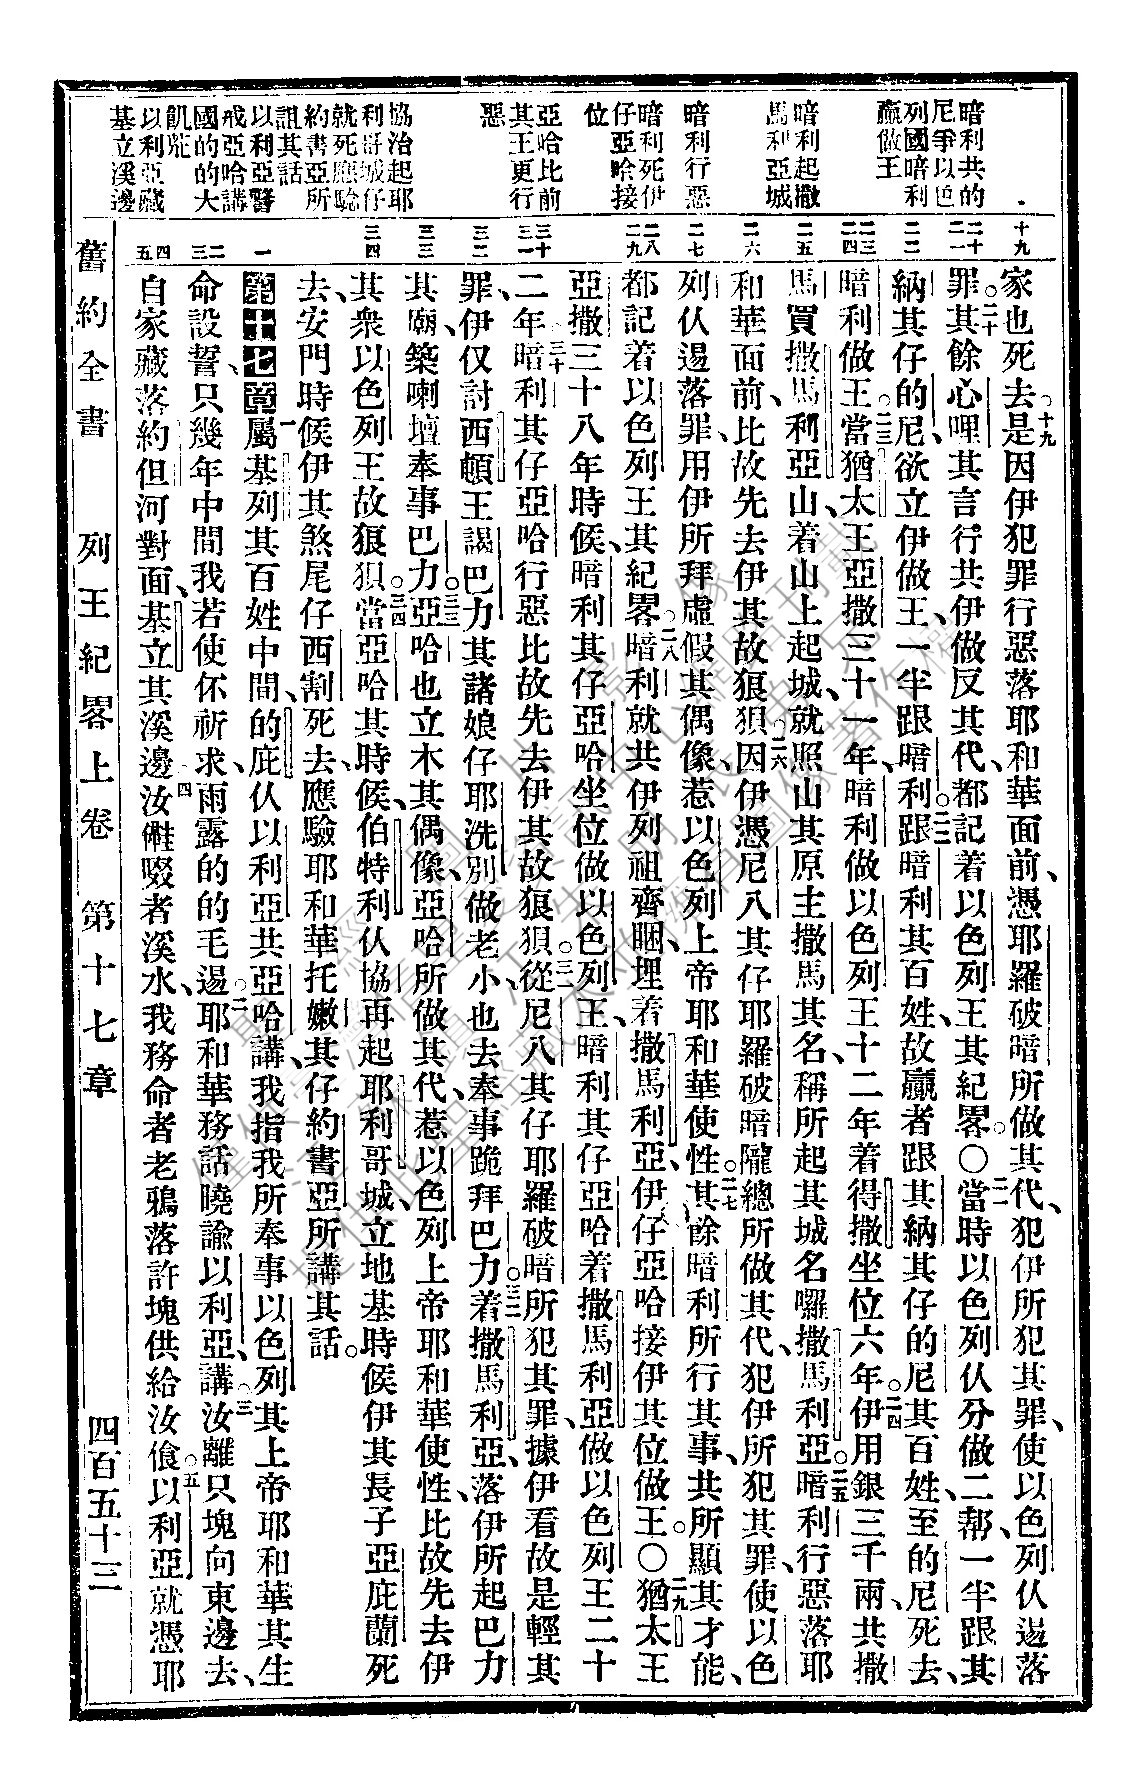 暗利共的
尼爭以色
列國暗利
贏做王
暗利起撒
馬利亞城
暗利行惡
暗利死伊
仔亞哈接
位
亞哈比前
其王更行
惡
協治起耶
利哥城仔
就死應驗
約書亞所
詛其話
以利亞警
戒亞哈講
國的的大
飢荒
以利亞藏
基立溪邊
十九
二十
二一
二二
二三
二四
二五
二六
二七
二八
二九
三十
三一
三二
三三
三四
一
二
三
四
五
家也死去。十九是因伊犯罪行惡落耶和華面前、憑耶羅破暗所做其代、犯伊所犯其罪、使以色列仫逿落
罪。二十其餘心哩、其言行共伊做反其代、都記着以色列王其紀畧。〇二一當時以色列仫分做二幇、一半跟其
納其仔的尼、欲立伊做王、一半跟暗利。二二跟暗利其百姓、故贏者跟其納其仔的尼其百姓、至的尼死去、
暗利做王。二三當猶太王亞撒三十一年、暗利做以色列王十二年、着得撒坐位六年。二四伊用銀三千兩、共撒
馬買撒馬利亞山、着山上起城、就照山其原主撒馬其名、稱所起其城名囉撒馬利亞。二五暗利行惡落耶
和華面前、比故先去伊其故狼狽。二六因伊憑尼八其仔耶羅破暗隴總所做其代、犯伊所犯其罪、使以色
列仫逿落罪、用伊所拜虛假其偶像、惹以色列上帝耶和華使性。二七其餘暗利所行其事、共所顯其才能、
都記着以色列王其紀畧。二八暗利就共伊列祖齊睏、埋着撒馬利亞、伊仔亞哈接伊其位做王。〇二九猶太王
亞撒三十八年時候、暗利其仔亞哈坐位做以色列王、暗利其仔亞哈着撒馬利亞做以色列王二十
二年。三十暗利其仔亞哈行惡比故先去伊其故狼狽。三一從尼八其仔耶羅破暗所犯其罪、據伊看故是輕其
罪、伊仅討西頓王謁巴力其諸娘仔耶洗別做老小、也去奉事跪拜巴力。三二着撒馬利亞、落伊所起巴力
其廟、築喇壇奉事巴力。三三亞哈也立木其偶像、亞哈所做其代、惹以色列上帝耶和華使性、比故先去伊
其衆以色列王故狼狽。三四當亞哈其時候、伯特利仫協再起耶利哥城、立地基時候、伊其長子亞庇蘭死
去、安門時候、伊其煞尾仔西割死去、應驗耶和華托嫩其仔約書亞所講其話。
第十七章一屬基列其百姓中間、的庇仫以利亞共亞哈講、我指我所奉事以色列其上帝耶和華其生
命設誓、只幾年中間、我若使伓祈求、雨露的的毛逿。二耶和華務話曉諭以利亞、講、三汝離只塊向東邊去、
自家藏落約但河對面、基立其溪邊、四汝儺啜者溪水、我務命者老鴉落許塊供給汝飡。五以利亞就憑耶
舊約全書 列王紀畧上卷 第十七章 四百五十三